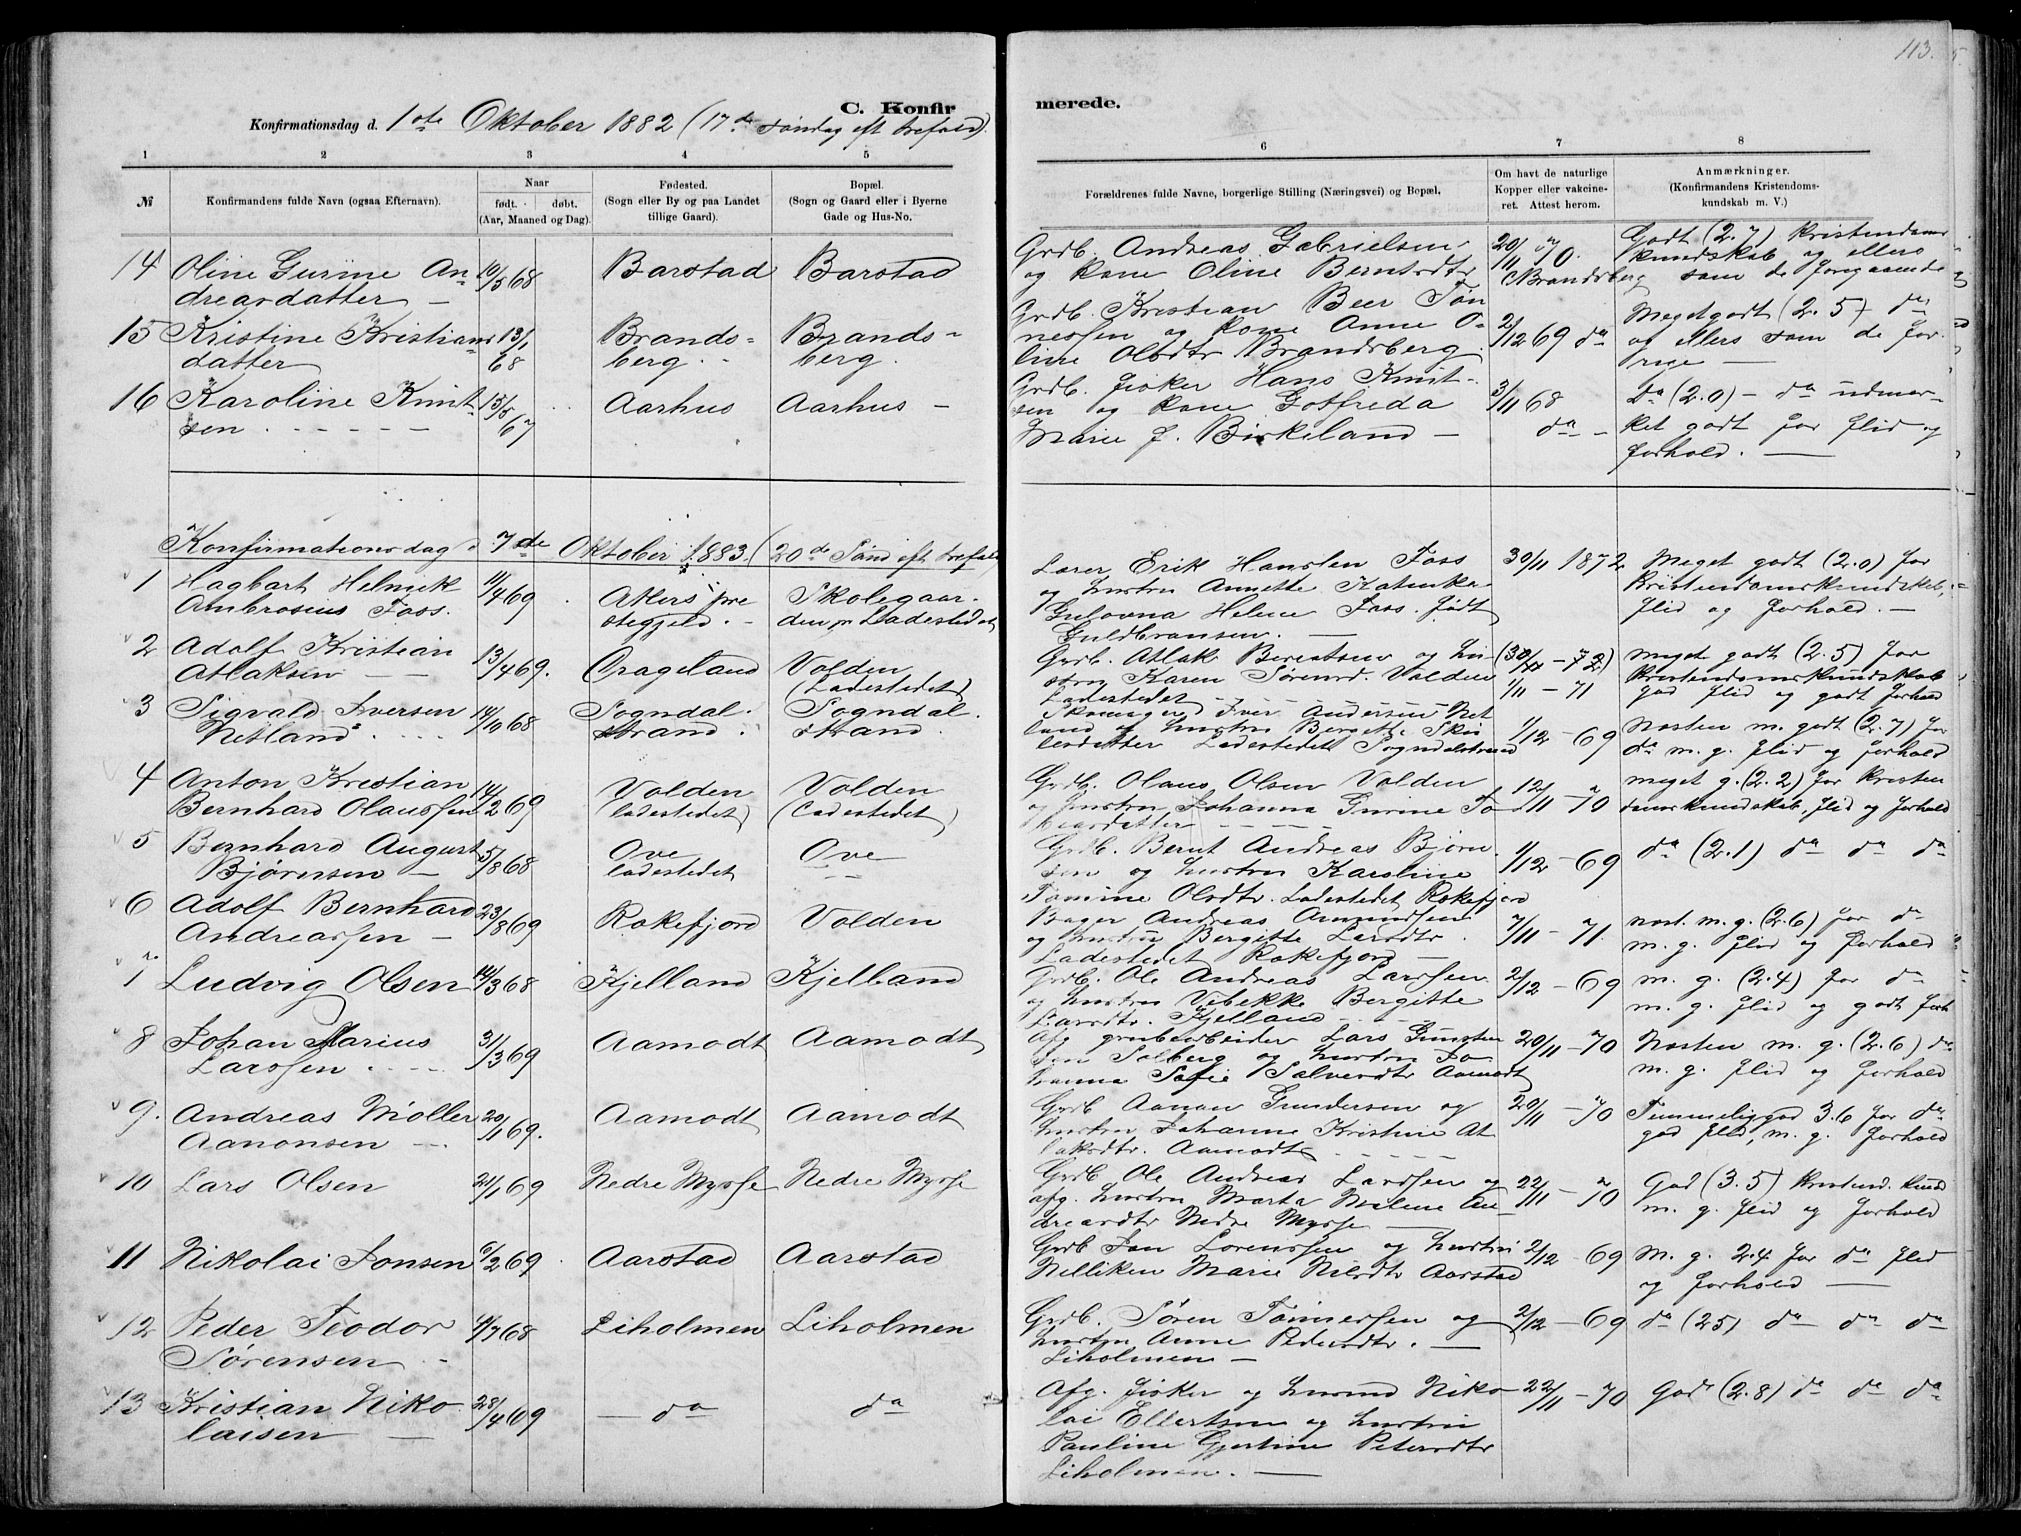 113.
C. Konfir merede.
Konfirmationsdag d. 1ste Oktober 1882 (17de Søndag eft trefold).
1 2 3 4 5 6 7 8
№
Konfirmandens fulde Navn (ogsaa Efternavn).
Naar
født. døbt.
(Aar, Maaned og Dag).
Fødested.
(Sogn eller By og paa Landet
tillige Gaard).
Bopæl.
(Sogn og Gaard eller i Byerne
Gade og Hus-No.
Forældrenes fulde Navne, borgerlige Stilling (Næringsvei) og Bopæl.
Om havt de naturlige
Kopper eller vakcine-
ret. Attest herom.
Anmærkninger.
(Konfirmandens Kristendoms-
kundskab m. V.)
14 Oline Gurine An-
dreasdatter —
10/5 68 Barstad Barstad
Grdb. Andreas Gabrielsen
og kone Oline Berntsdtr
20/11 70.
Brandsberg
Godt (2.7) Kristendoms
kundskab og ellers
som de foregaaende
15 Kristine Kristians
datter
13/1
68
Brands-
berg.
Brands-
berg.
Grdb. Kristian Beer Tøn
nessen og kone Anne O-
line Olsdtr Brandsberg
2/12 69 da
Megetgodt (2.5) - da
og ellers som de for-
rige —
16 Karoline Knut-
sen
15/5
67
Aarhus Aarhus -
Grdb. fisker Hans Knut-
sen og kone Gotfreda
Marie J. Birkeland —
3/11 68
da -
Da (2.0) - da udmær-
ket godt for flid og
forhold. —
Konfirmationsdag d 7de Oktober 1883. (20de Sønd eft trefold
1 Hagbart Helmick
Ambrosius Foss.
11/4 69
Akers pre
stegjeld. -
Skolegaar-
den pr Ladestedet
Lærer Erik Hanslen Foss
og hustru Annette Katinka
Gulovna Helene Foss. født
Guldbransen. —
30/11 1872
Meget godt (2.0) for
Kristendomskundskab,
flid og forhold. —
2 Adolf Kristian
Atlaksen — —
13/4 69.
Orageland
Volden
(Ladestedet)
Grdb. Atlak Berentsen og hu-
stru Karen Sørensd. Volden
Ladestedet
(30/11 - 72)
1/11 - 71
meget godt (2.5) for
Kristendomskundskab
god flid og godt forhold
3 Sigvald Iversen
Netland
14/10 68
Sogndal.
strand.
Sogndal.
strand.
Skomager Iver Andersen Net
land og hustru Bergitte Skis
lesdatter Ladestedet Sogndalstrand
1/12 - 69
Næsten m. godt (2.7) for
da m. g. flid og forhold
4 Anton Kristian
Bernhard Olaussen
14/2 69
Volden
ladestedet)
Volden
(Ladestedet)
Grdb. Olaus Olsen Volden
og hustru Johanna Gurine To
biasdatter
12/11 - 70
meget g. (2.2) for Kristen
domskundskab, flid og forhold
5 Bernhard August
Bjørnsen —
5/8 68
Ove
ladestedet
Ove
Grdb. Bernt Andreas Bjørn
sen og hustru Karoline
Tomine Olsdtr. Ladestedet Rekefjord
1/12 - 69
da (2.1) da da da
6 Adolf Bernhard
Andreassen —
23/8 69
Rækefjord Volden
Bager Andreas Amundsen
og hustru Bergitte Larsdtr.
Ladestedet Rækefjord —
7/11 - 71.
næst. m. g. (2.6) for da
m. g. flid og forhold
7 Ludvig Olsen
14/3 68
Kjelland Kjelland
Grdb. Ole Andreas Larssen
og hustru Vibekke Bergitte
Larsdtr. Kjelland
2/12 - 69
m. g. (2.4) for da
m. g. flid og godt forh
8 Johan Marius
Larssen
31/3 69
Aamodt Aamodt
Afg grubearbeider Lars Gunsten
sen Solberg og hustru Jo
hanna Sofie Salvesdtr Aamodt
20/11 - 70
Næsten m. g. (2.6) da
m. g. flid og forhold
9. Andreas Møller
Aanonsen —
20/1 69.
Aamodt Aamodt
Grdb Aanon Gundersen og
hustru Johanne Kristine At
laksdtr. Aamodt
20/11 - 70
Temmeliggod 3.6 for da
god flid, m. g. forhold
10 Lars Olsen
21/1 69
Nedre Mysse Nedre Mysse
Grdb Ole Andreas Larssen og
afg. hustru Marta Malene An-
dreasdtr Nedre Mysse —
22/11 - 70
God (3.5) Kristend. kund
m. g. flid og forhold
11 Nikolai Jonsen
6/2 69
Aarstad Aarstad
Grdb Jon Lorenssen og hustru
Nelliken Marie Nilsdtr Aarstad
2/12 - 69
M. g. 2.4 for da flid
og forhold —
12 Peder Teodor
Sørensen
4/7 68
Liholmen Liholmen
Grdb. Søren Tønnessen og
hustru Anne Pedersdtr. —
Liholmen —
2/12 - 69
da (25) da da da
13 Kristian Niko
laisen —
28/4 69
— da da
Afg. fisker og husmand Niko
lai Ellertsen og hustru
Pauline Gjertine Petersdtr
Liholmen. —
22/11 - 70
God (2.8) da da da